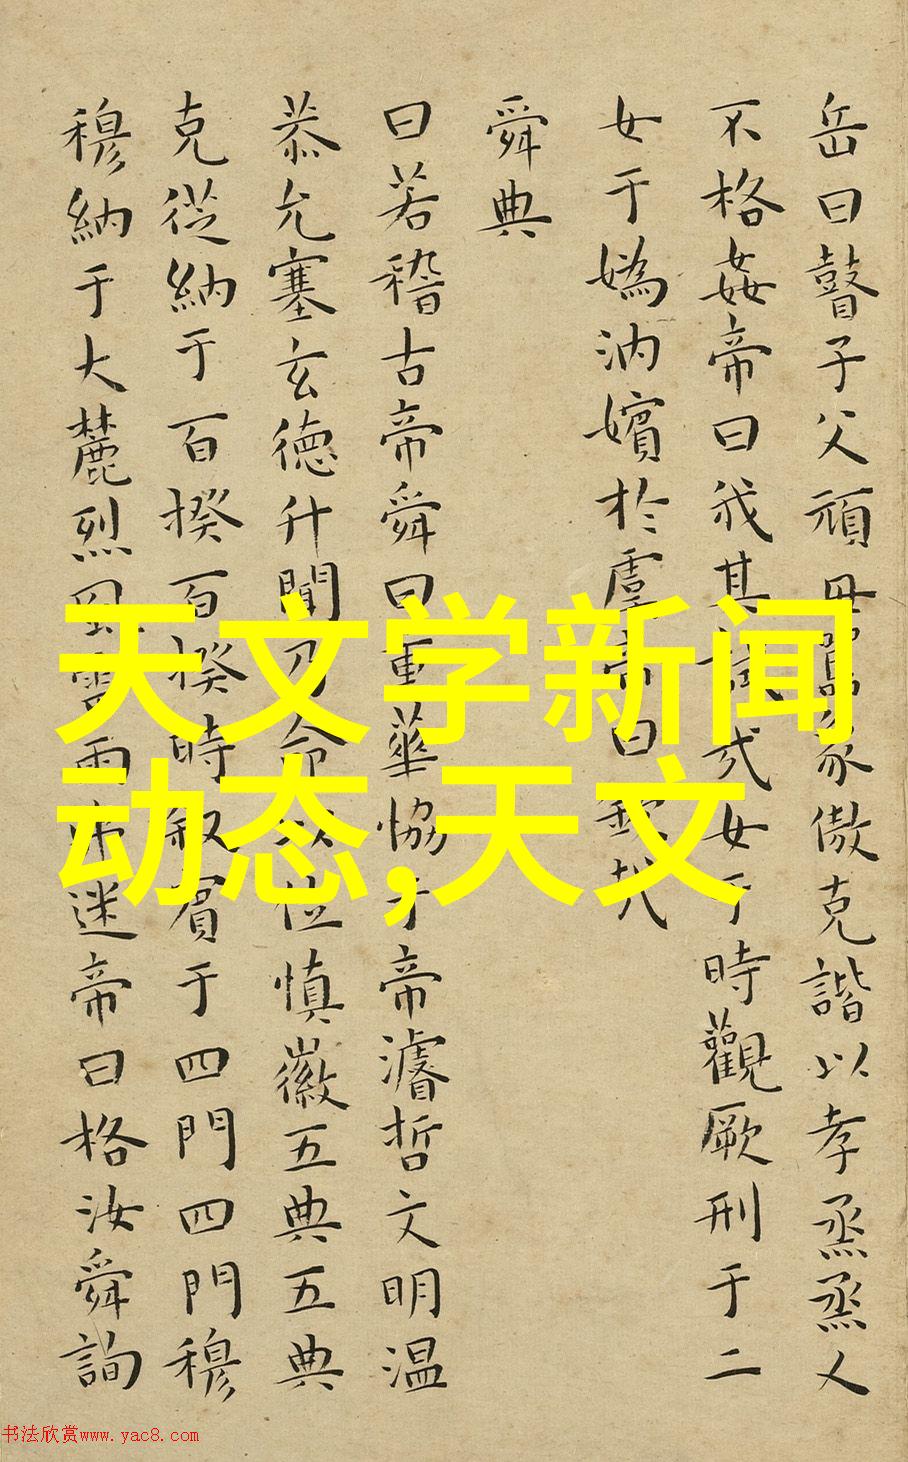 岳曰瞽子父頑母嚚象傲克諧以孝烝烝乂
不格姦帝曰我其試哉女于時觀厥刑于二
女于媯汭嬪於虞帝曰欽哉
舜典
曰若稽古帝舜曰重華協于帝濬哲文明温
恭允塞玄德升聞乃命以位慎徽五典五典
克從納于百揆百揆時叙賓于四門四門穆
穆納于大麓烈風雷雨弗迷帝曰格汝舜詢
天文学新闻
动态,天文
书法欣赏www.yac8.com